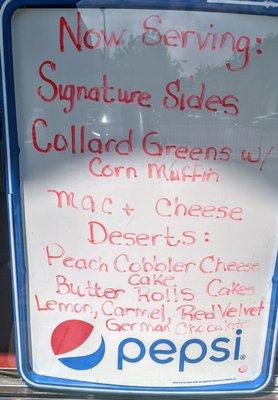 Now Serving:
Signature Sides
Collard Greens w/
Corn Muffin
Mac + Cheese
Deserts:
Peach Cobbler Cheese
Cake
Butter Rolls Cakes
Lemon, Carmel, Red Velvet
German Chocolate
pepsi